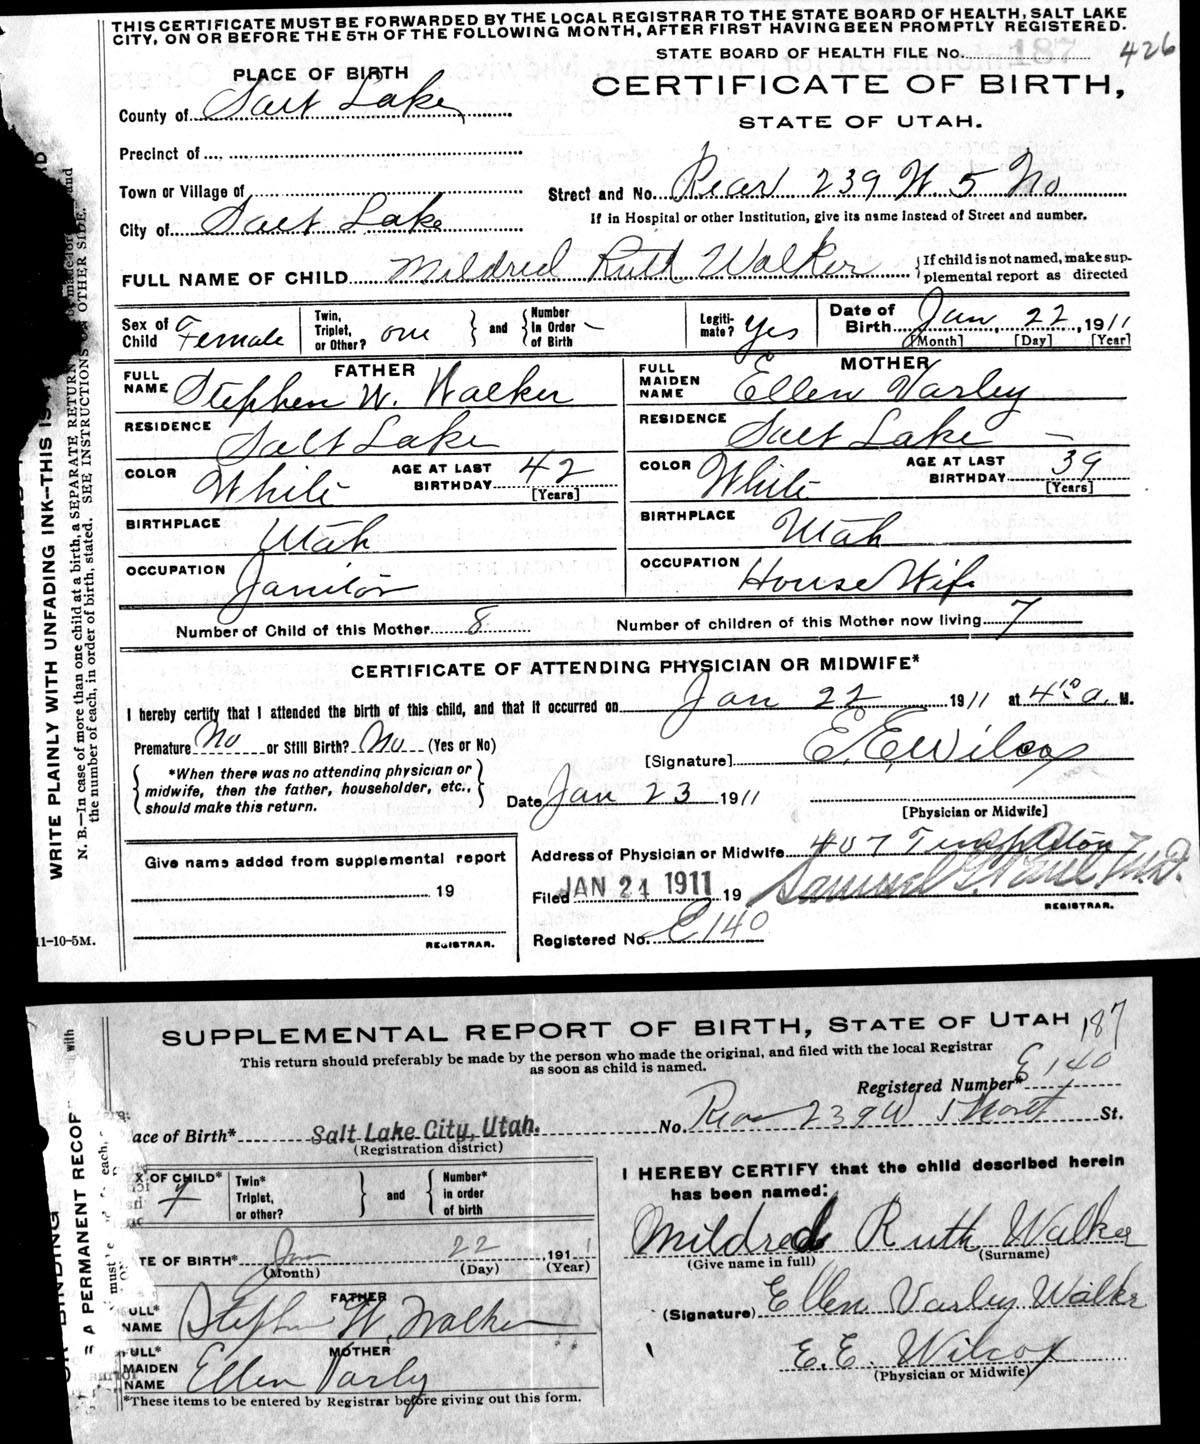 THIS CERTIFICATE MUST BE FORWARDED BY THE LOCAL REGISTRAR TO THE STATE BOARD OF HEALTH, SALT LAKE
CITY, ON OR BEFORE THE 5TH OF THE FOLLOWING MONTH, AFTER FIRST HAVING BEEN PROMPTLY REGISTERED.
STATE BOARD OF HEALTH FILE No. 187 426
PLACE OF BIRTH
CERTIFICATE OF BIRTH,
STATE OF UTAH.
County of Salt Lake
Precinct of
Town or Village of
Street and No. Rear 239 W 5 No
If in Hospital or other Institution, give its name instead of Street and number.
City of Salt Lake
FULL NAME OF CHILD Mildred Ruth Walker
If child is not named, make sup-
plemental report as directed
Sex of Child Female
Twin, Triplet, or Other? one
and
Number in Order of Birth –
Legiti-mate? Yes
Date of Birth Jan, 22, 1911
[Month] [Day] [Year]
FATHER
FULL NAME Stephen W. Walker
RESIDENCE Salt Lake
COLOR White
AGE AT LAST BIRTHDAY 42
[Years]
BIRTHPLACE Utah
OCCUPATION Janitor
MOTHER
FULL MAIDEN NAME Ellen Varley
RESIDENCE Salt Lake –
COLOR White
AGE AT LAST BIRTHDAY 39
[Years]
BIRTHPLACE Utah
OCCUPATION House Wife
Number of Child of this Mother 8
Number of children of this Mother now living 7
CERTIFICATE OF ATTENDING PHYSICIAN OR MIDWIFE*
I hereby certify that I attended the birth of this child, and that it occurred on Jan 22 1911 at 4 10 a. M.
Premature No or Still Birth? No (Yes or No)
[Signature] E. E. Wilcox
*When there was no attending physician or
midwife, then the father, householder, etc.,
should make this return.
Date Jan 23 1911
[Physician or Midwife]
Give name added from supplemental report
19
REGISTRAR.
Address of Physician or Midwife 407 Templeton
Filed JAN 24 1911 19 Samuel G. Paul M.D.
REGISTRAR.
Registered No. E140
WRITE PLAINLY WITH UNFADING INK—THIS IS
N. B.—In case of more than one child at a birth, a SEPARATE RETURN
the number of each, in order of birth, stated. SEE INSTRUCTIONS ON OTHER SIDE.
11-10-5M.
SUPPLEMENTAL REPORT OF BIRTH, STATE OF UTAH 187
This return should preferably be made by the person who made the original, and filed with the local Registrar
as soon as child is named.
Registered Number* E140
ace of Birth* Salt Lake City, Utah.
(Registration district)
No. Rear 239 W 5 North St.
X OF CHILD* f
Twin* Triplet, or other?
and
Number* in order of birth
TE OF BIRTH* Jan 22 1911
(Month) (Day) (Year)
FATHER
ULL* NAME Stephen W. Walker
MOTHER
FULL* MAIDEN NAME Ellen Varley
*These items to be entered by Registrar before giving out this form.
I HEREBY CERTIFY that the child described herein
has been named:
Mildred Ruth Walker
(Give name in full) (Surname)
(Signature) Ellen Varley Walker
E. E. Wilcox
(Physician or Midwife)
A PERMANENT RECOR